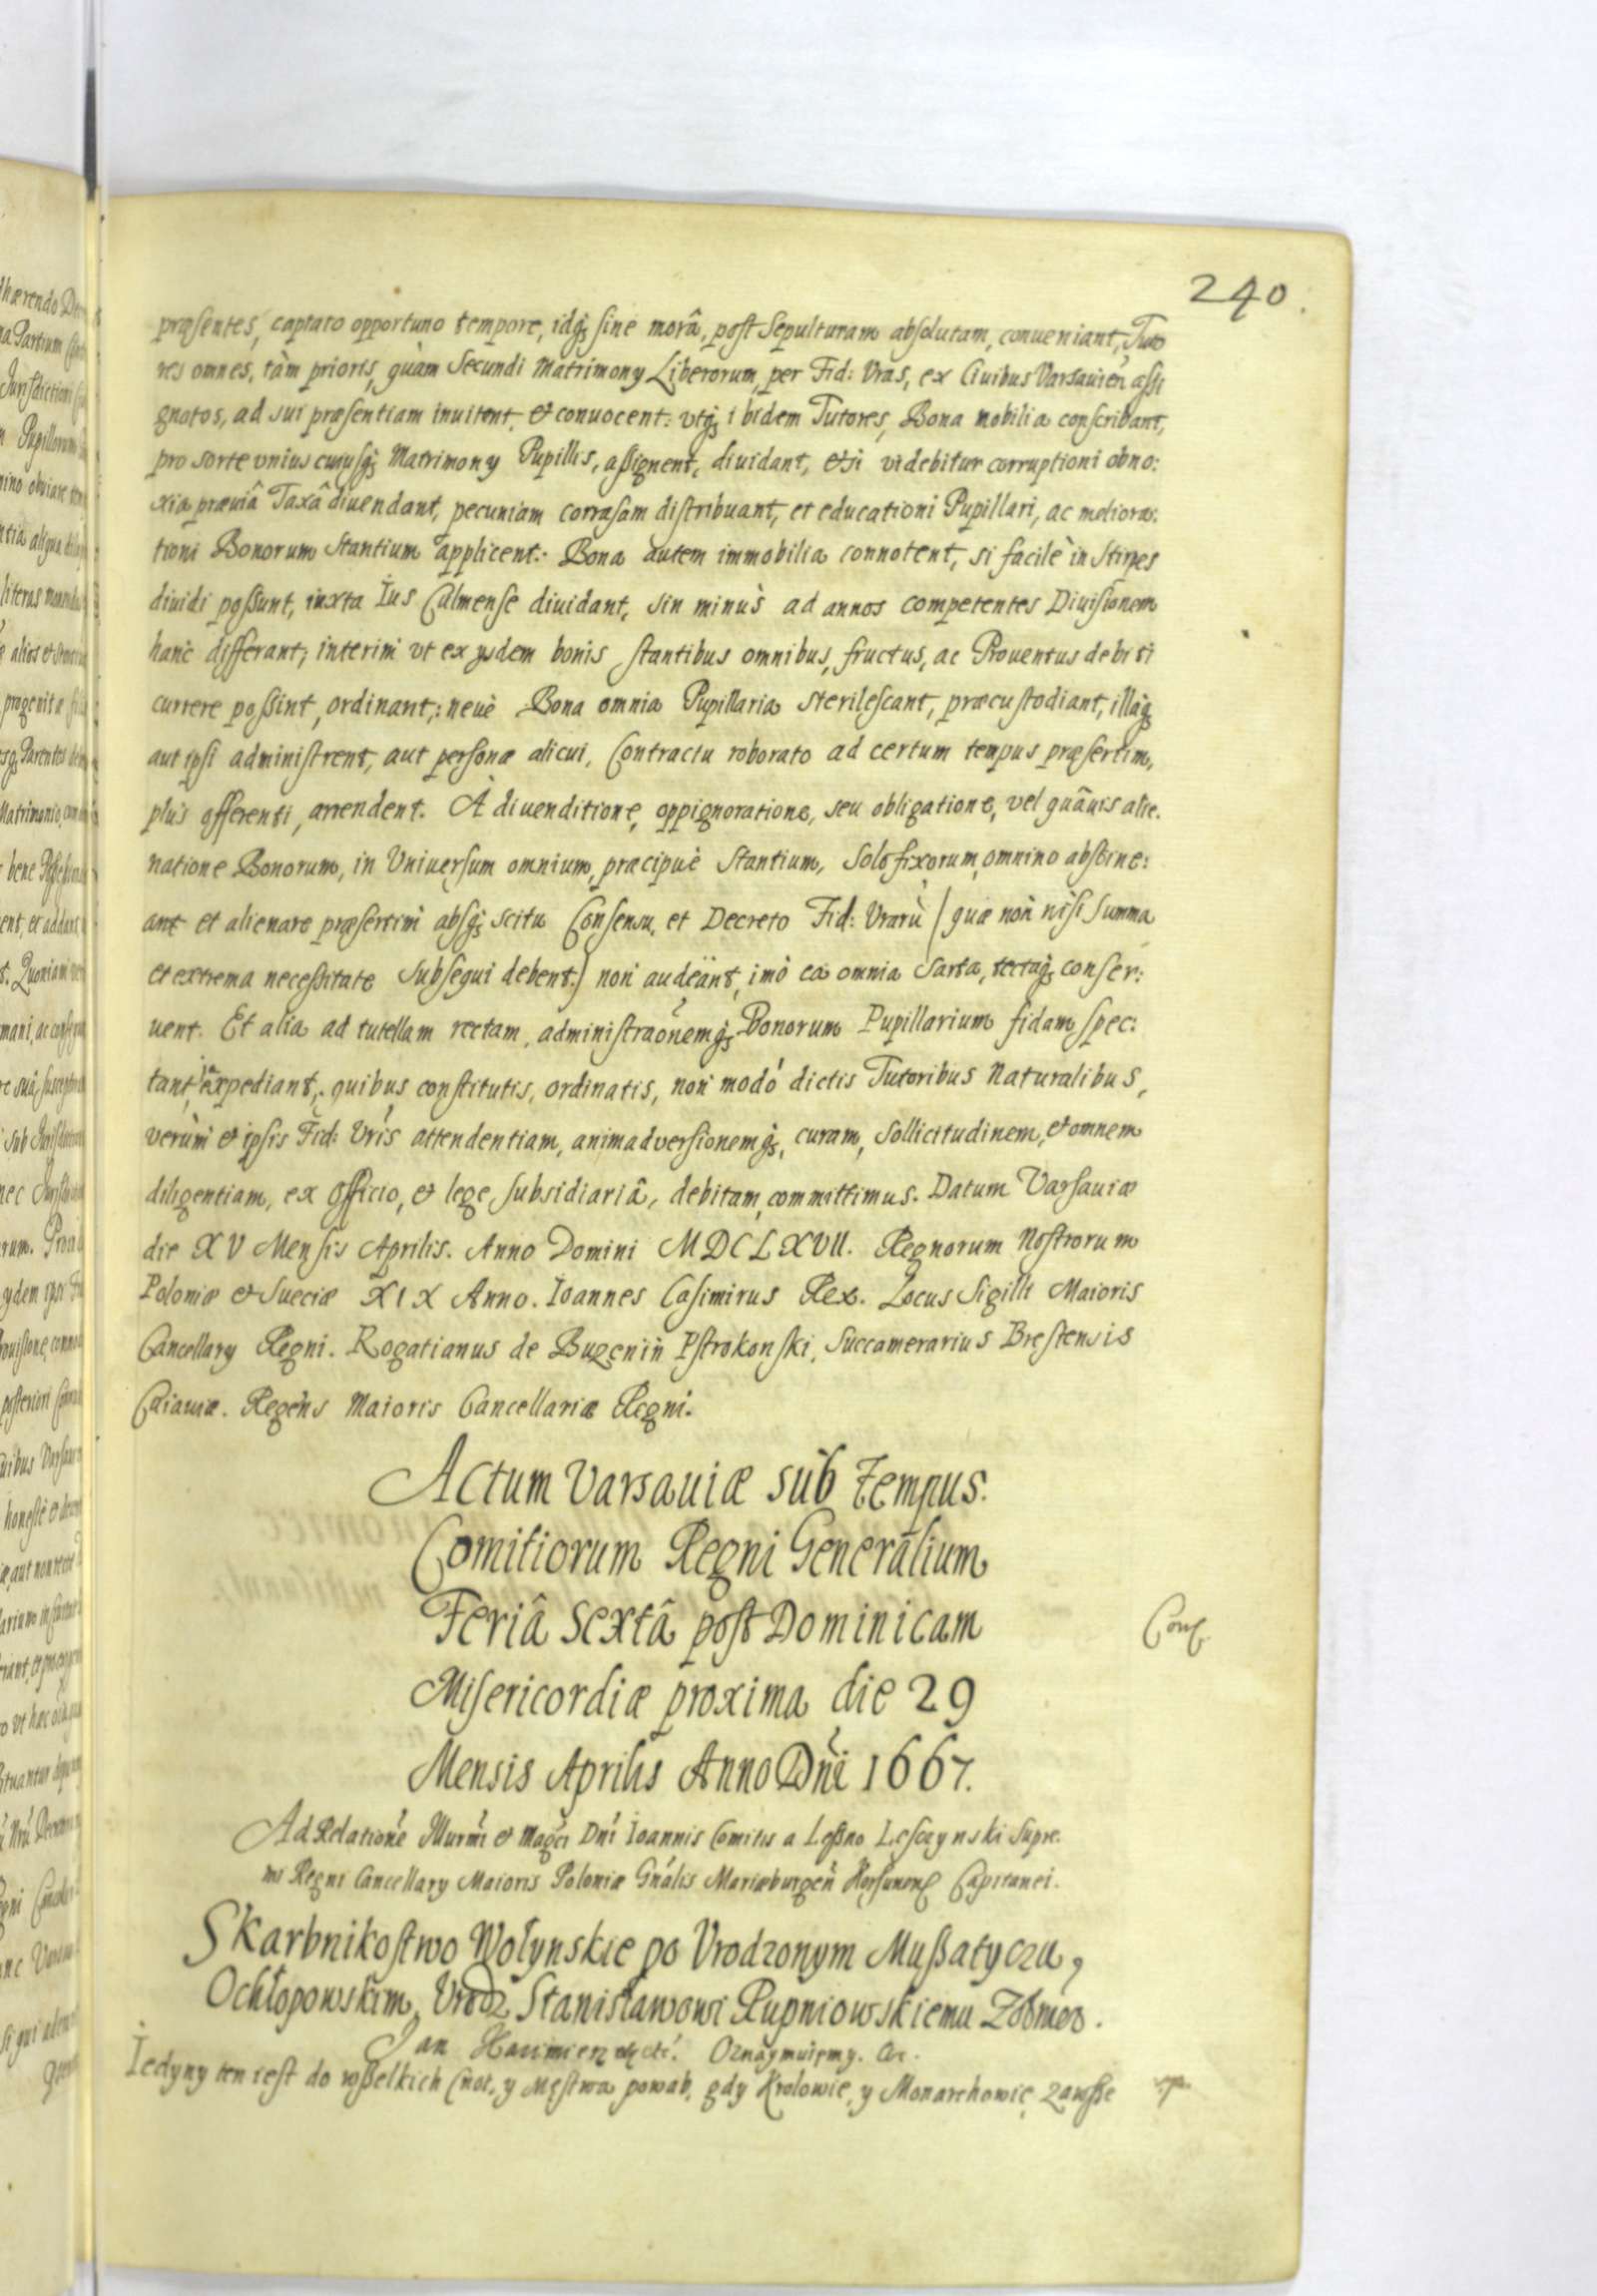 240.
præsentes, captato opportuno tempore, idq; sine morâ, post Sepulturam absolutam, conueniant, Tuto
res omnes, tàm prioris, quàm Secundi Matrimony Liberorum, per Fid: Vras, ex Ciuibus Varsauien̄ assi
gnatos, ad sui præsentiam inuitent, et conuocent: vtq; ibidem Tutores, Bona mobilia conscribant,
pro sorte vnius cuiusq; Matrimony Pupillis, assignent, diuidant, et si videbitur corruptioni obno:
xia præuiâ Taxâ diuendant, pecuniam corrasam distribuant, et educationi Pupillari, ac meliora:
tioni Bonorum Stantium applicent: Bona autem immobilia connotent, si facilè in Stirpes
diuidi possunt, iuxta Ius Culmense diuidant, sin minùs ad annos competentes Diuisionem
hanc differant; interim vt ex ysdem bonis stantibus omnibus, fructus, ac Prouentus debiti
currere possint, ordinant,: neuè Bona omnia Pupillaria sterilescant, præcustodiant, illaq;
aut ipsi administrent, aut personæ alicui, Contractu roborato ad certum tempus præsertim,
plus offerenti, arrendent. À diuenditione, oppignoratione, seu obligatione, vel quâuis alie.
natione Bonorum, in Vniuersum omnium, præcipuè Stantium, Solo fixorum, omnino abstine:
ant et alienare præsertim absq; scitu Consensu, et Decreto Fid: Vrarū (quæ non nisi Summa
et extrema necessitate subsequi debent:) non audeant, imò ea omnia Sarta, tectaq; conser:
uent. Et alia ad tutellam rectam, administraōnemq; Bonorum Pupillarium fidam spec:
tant, expediant,: quibus constitutis, ordinatis, non modò dictis Tutoribus Naturalibus,
verùm et ipsis Fid: Vris attendentiam, animadversionemq;, curam, Sollicitudinem, et omnem
diligentiam, ex Officio, et lege, subsidiariâ, debitam, committimus. Datum Varsauiæ
die XV Mensis Aprilis. Anno Domini MDCLXVII. Regnorum Nostrorum
Poloniæ et Sueciæ XIX Anno. Ioannes Casimirus Rex. Locus Sigilli Maioris
Cancellary Regni. Rogatianus de Buzenin Pstrokonski, Succamerarius Brestensis
Cuiauiæ. Regens Maioris Cancellariæ Regni.
Actum Varsauiæ sub tempus.
Comitiorum Regni Generalium
Feriâ Sextâ post Dominicam
Misericordiæ proxima die 29
Mensis Aprilis Anno Dn̄i 1667.
Ad Relationē Illurmi et Magci Dni Ioannis Comitis a Leßno Lesczynski Supre.
mi Regni Cancellary Maioris Poloniæ Gnālis Mariæburgen̄ Capitanei.
Skarbnikostwo Wołynskie po Vrodzonym Mußatyczu,
Ochłopowskim, Vrodz Stanisławowi Rupniowskiemu
Jan Kazimierz etc. Oznaymuięmy. etc.
Iedyny ten iest do wßelkich Cnot, y Męstwa powab, gdy Krolowie, y Monarchowie, zawsße